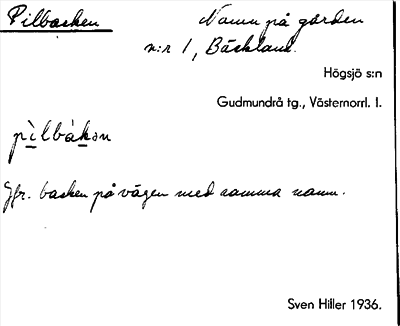 Pilbacken Namn på gården
n:r 1, Bäckland.
Högsjö s:n
Gudmundrå tg., Västernorrl. l.
pìlbàkən
Jfr. backen på vägen med samma namn.
Sven Hiller 1936.